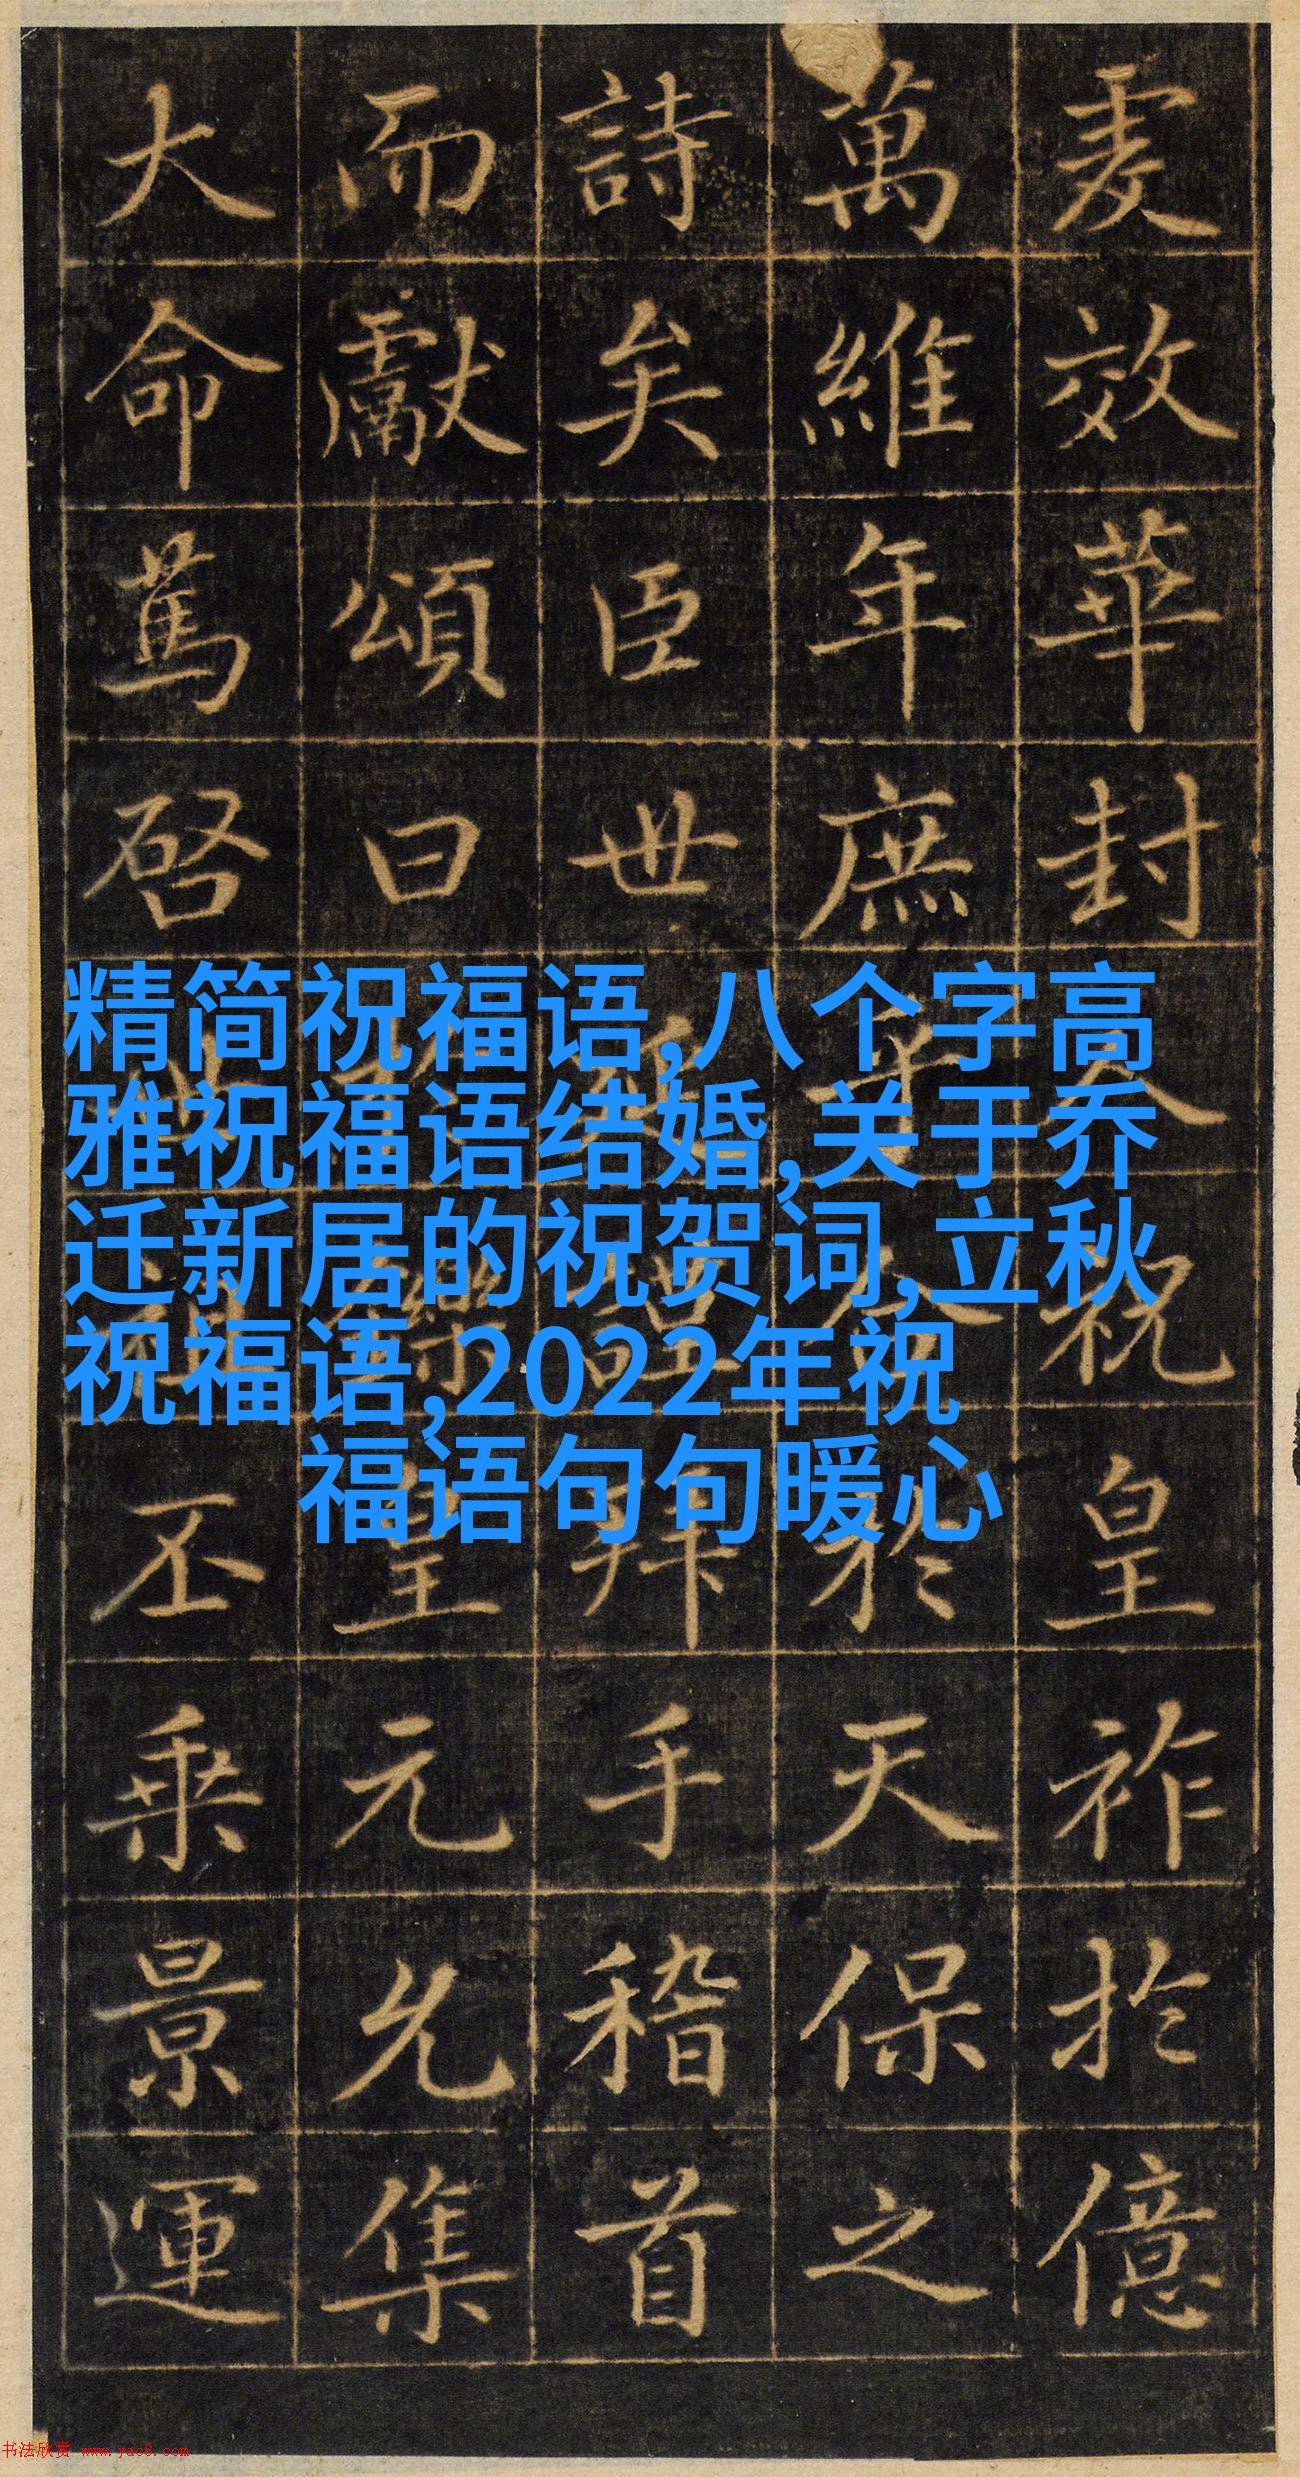 爰效華封人祝皇祚於億
萬維年庶乎合於天保之
詩矣臣世延謹拜手稽首
而獻頌曰於鑠皇元允集
大命篤啓世祖丕乘景運
精简祝福语,八个字高
雅祝福语结婚,关于乔
迁新居的祝贺词,立秋
祝福语,2022年祝
福语句句暖心
书法欣赏 www.yac8.com